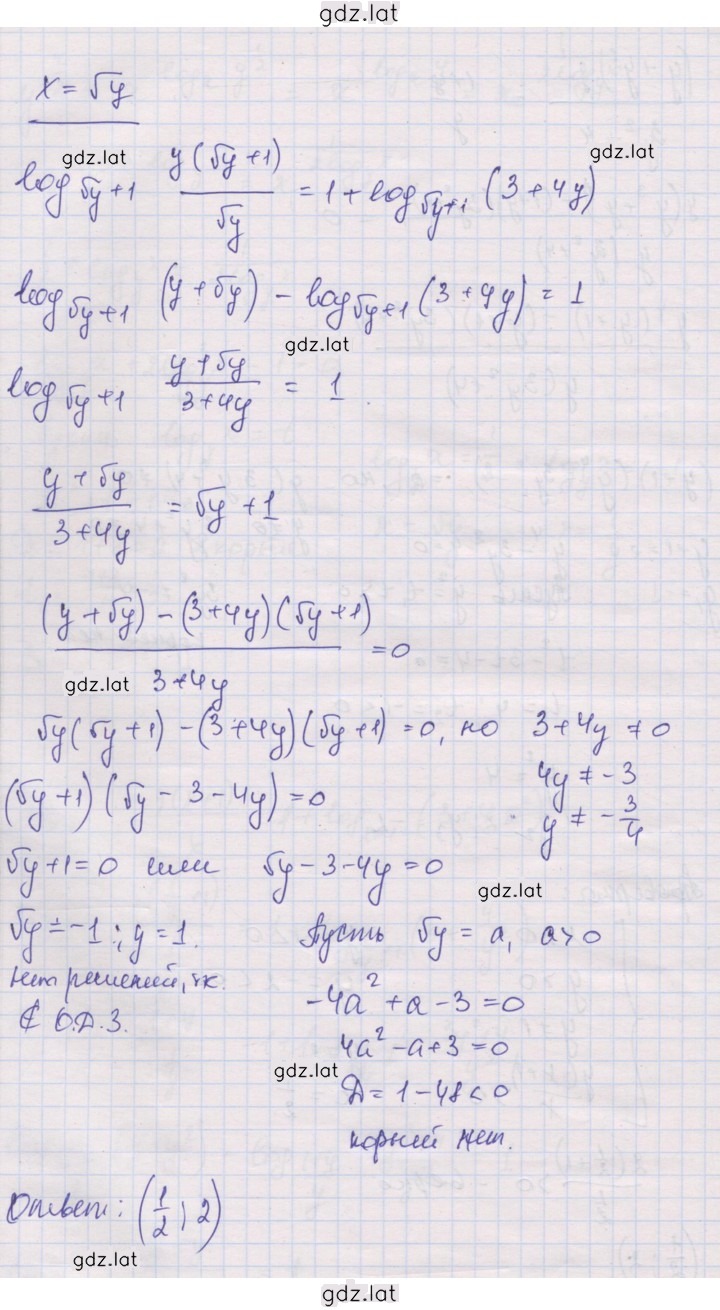 gdz.lat
x = √y
gdz.lat
gdz.lat
log_{√y+1} \frac{y(√y+1)}{√y} = 1 + log_{√y+1} (3+4y)
log_{√y+1} (y+√y) - log_{√y+1} (3+4y) = 1
gdz.lat
log_{√y+1} \frac{y+√y}{3+4y} = 1
\frac{y+√y}{3+4y} = √y+1
\frac{(y+√y)-(3+4y)(√y+1)}{3+4y} = 0
gdz.lat
√y(√y+1)-(3+4y)(√y+1)=0, но 3+4y ≠ 0
(√y+1)(√y-3-4y)=0 4y ≠ -3
y ≠ -\frac{3}{4}
√y+1=0 или √y-3-4y=0
gdz.lat
√y ≠ -1; y=1. Пусть √y = a, a>0
Нет решений, т.к. -4a²+a-3=0
∉ О.Д.З. 4a²-a+3=0
gdz.lat
D=1-48<0
корней нет.
Ответ: (\frac{1}{2}; 2)
gdz.lat
gdz.lat